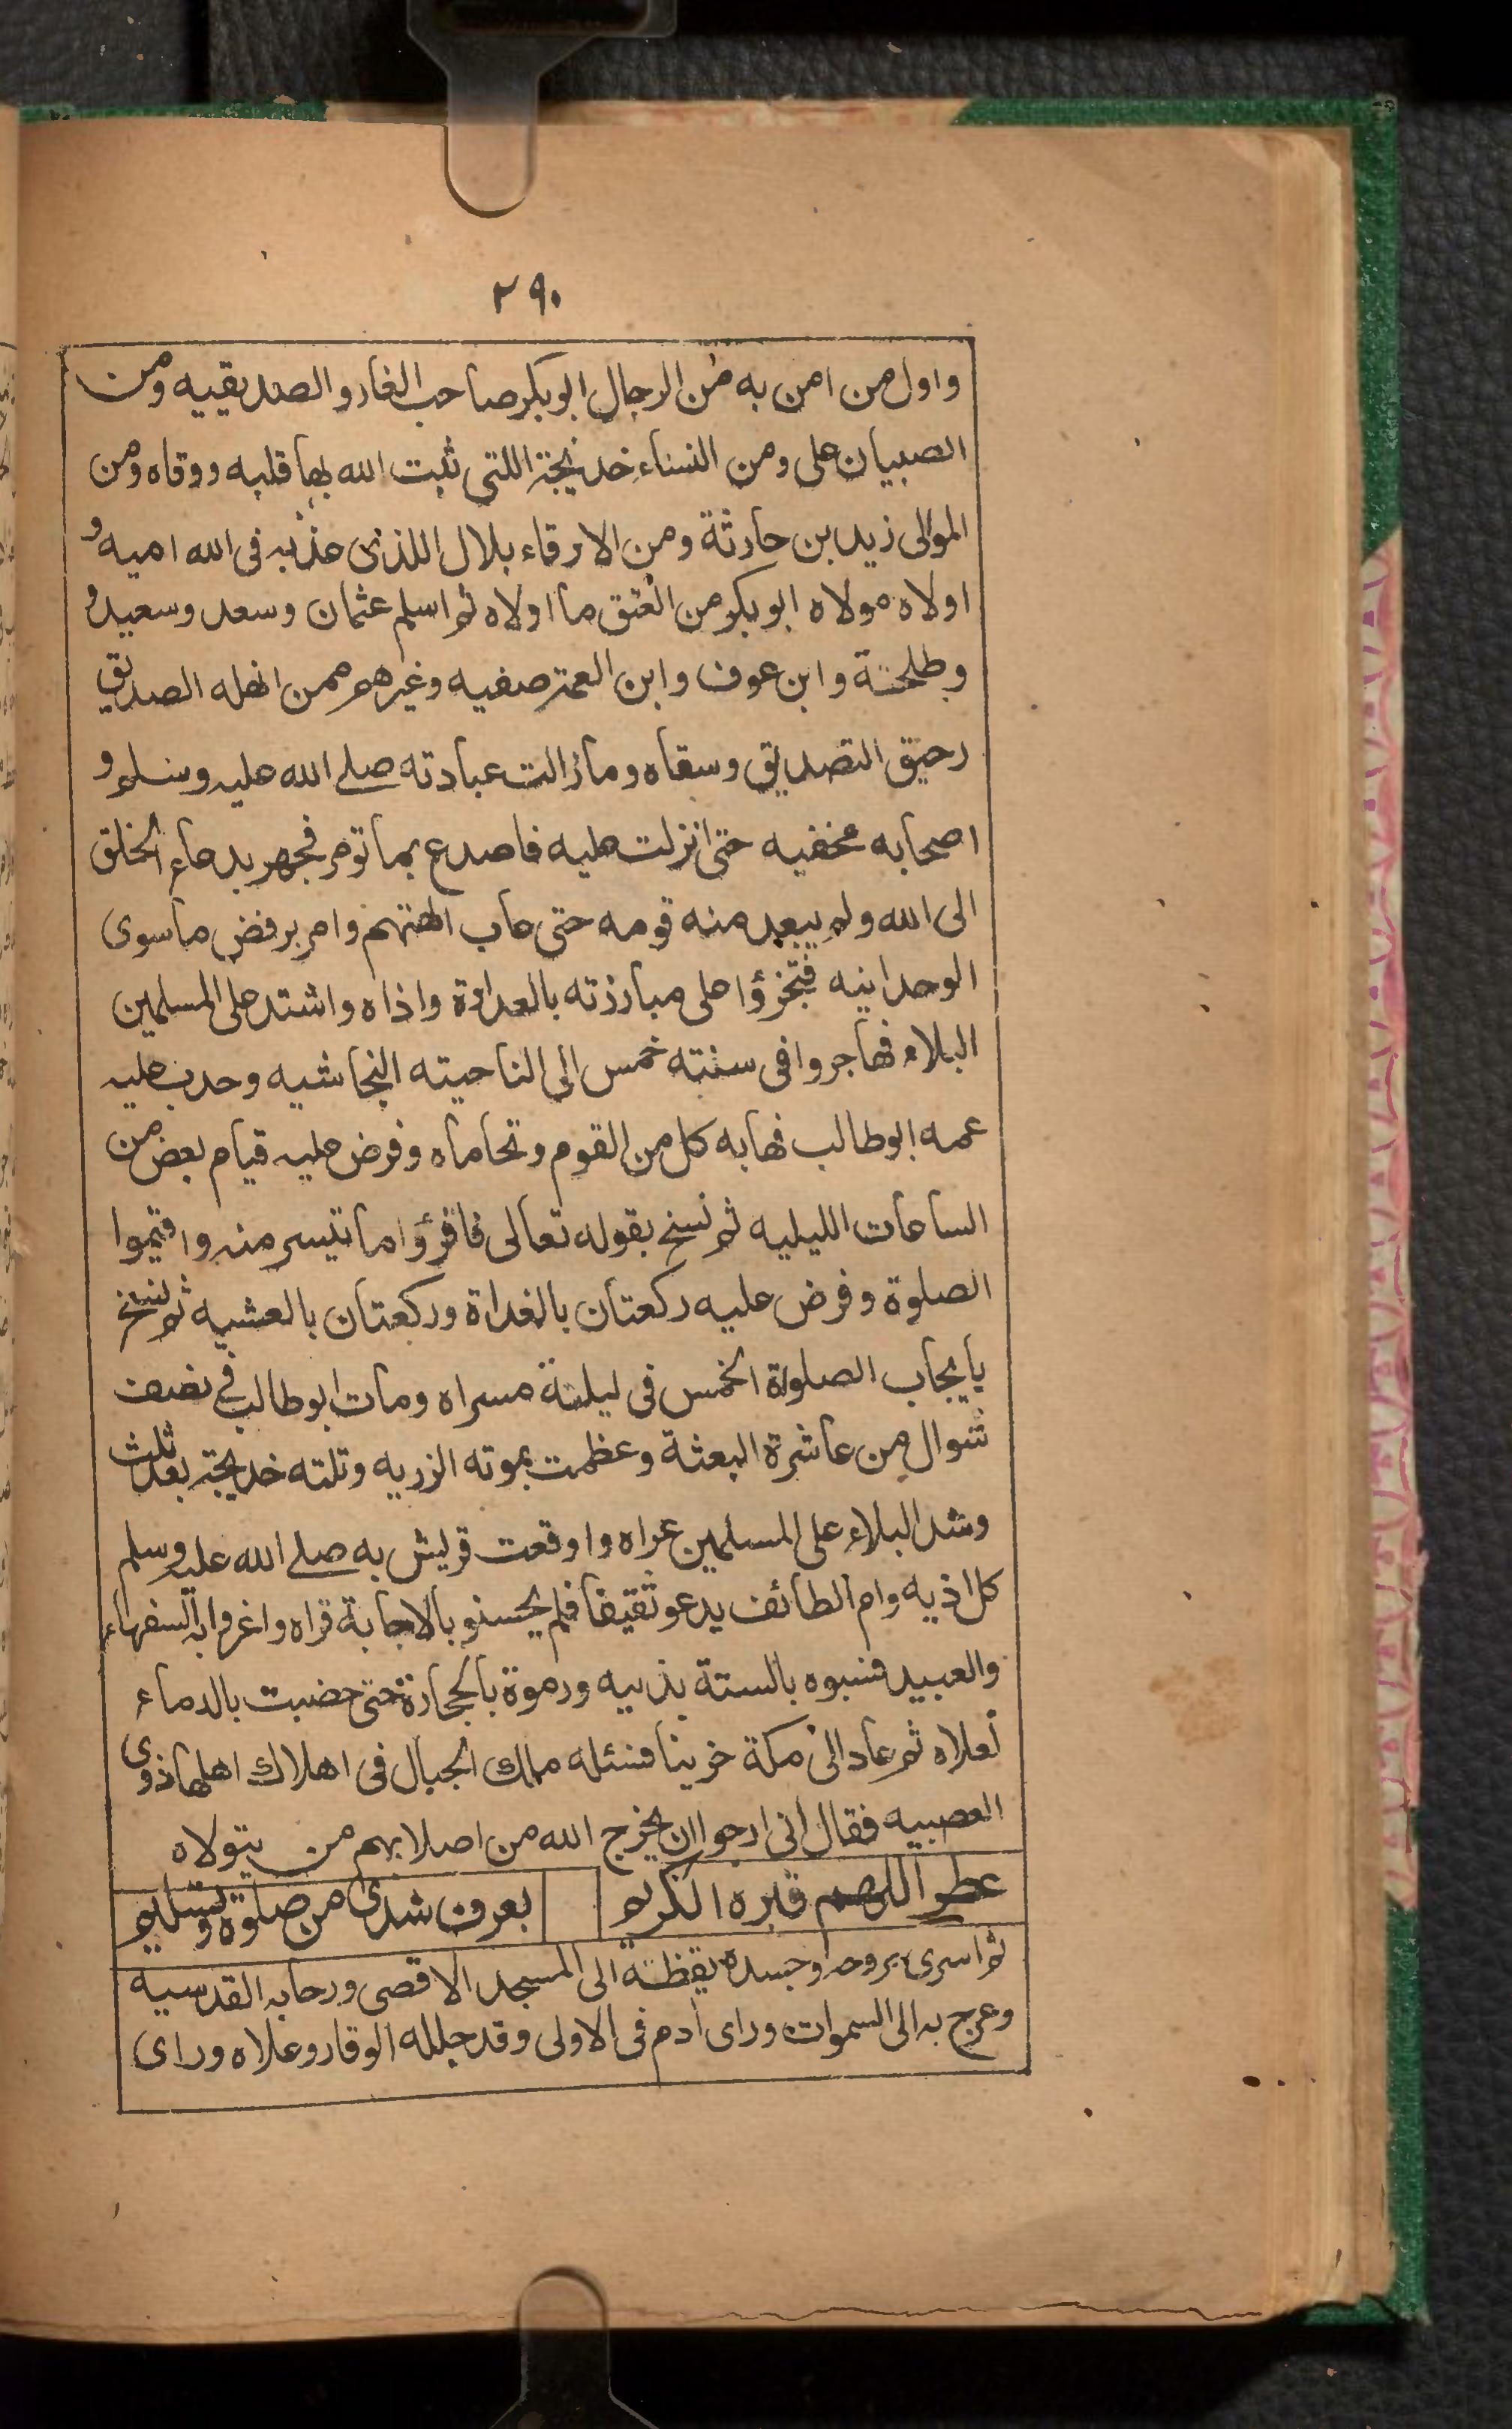 ٢٩٠
واول من امن به من الرجال ابوبكر صاحب الغار والصديقيه ومن
الصبيان على ومن النساء خديجة اللتى ثبت الله بها قلبه ووقاه ومن
الموالى زيد بن حارثة ومن الارقاء بلال اللذى عذبه فى الله اميه و
اولاه مولاه ابوبكر من العتق ما اولاه ثم اسلم عثمان وسعد وسعيد و
وطلحة وابن عوف وابن العمة صفيه وغيرهم ممن انهله الصديق
رحيق التصديق وسقاه ومازالت عبادته صلے الله عليه وسلم و
اصحابه مخفيه حتى انزلت عليه فاصدع بما تومر فجهر بدعاء الخلق
الى الله ولم يبعد منه قومه حتى عاب الهتهم وامر برفض ماسوى
الوحدانيه فتجرؤا على مبارزته بالعداوة واذاه واشتد على المسلمين
البلاء فهاجروا فى سنته خمس الى الناحيته النجاشيه وحدب عليه
عمه ابوطالب فهابه كل من القوم وتحاماه وفرض عليه قيام بعض من
الساعات الليليه ثم نسخ بقوله تعالى فاقرؤا ما تيسر منه واقيموا
الصلوة وفرض عليه ركعتان بالغداة وركعتان بالعشيه ثم نسخ
بايجاب الصلوة الخمس فى ليلة مسراه ومات ابوطالب فى نصف
شوال من عاشرة البعثة وعظمت بموته الزريه وتلته خديجة بعد ثلث
وشد البلاء على المسلمين عراه واوقعت قريش به صلے الله عليه وسلم
كل اذيه وام الطائف يدعو ثقيفا فلم يحسنو بالاجابة قراه واغروا به السفهاء
والعبيد فسبوه بالستة بذيه ورموة بالحجارة حتى خضبت بالدماء
نعلاه ثم عاد الى مكة حزينا فسئله ملك الجبال فى اهلاك اهلها ذوى
العصبيه فقال انى ارجوا ان يخرج الله من اصلابهم من يتولاه
عطر اللهم قبره الكريم بعرف شذى من صلوة وتسليم
ثم اسرى بروحه وجسده يقظة الى المسجد الاقصى ورحابه القدسيه
وعرج به الى السموات وراى ادم فى الاولى وقد جلله الوقار وعلاه وراى